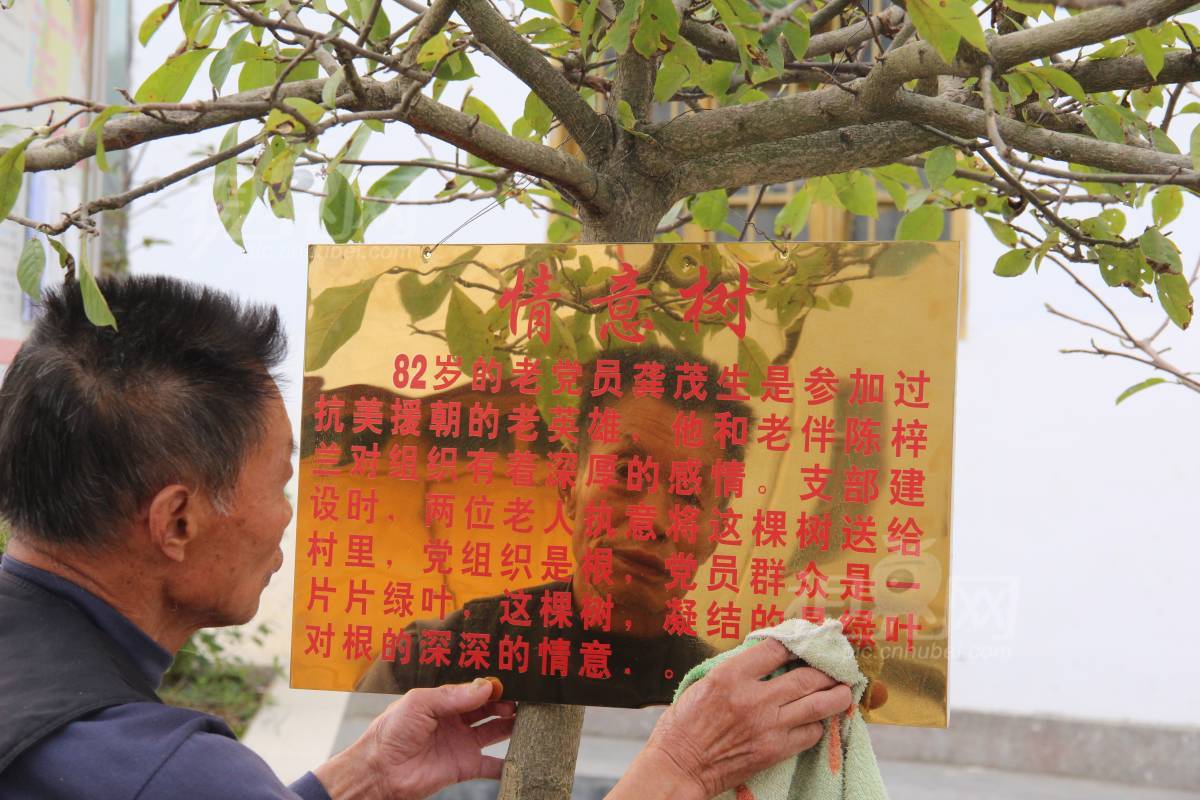 情意树
82岁的老党员龚茂生是参加过
抗美援朝的老英雄、他和老伴陈梓
兰对组织有着深厚的感情。支部建
设时，两位老人执意将这棵树送给
村里，党组织是根，党员群众是一
片片绿叶，这棵树，凝结的是绿叶
对根的深深的情意．。
pic.cnhubei.com